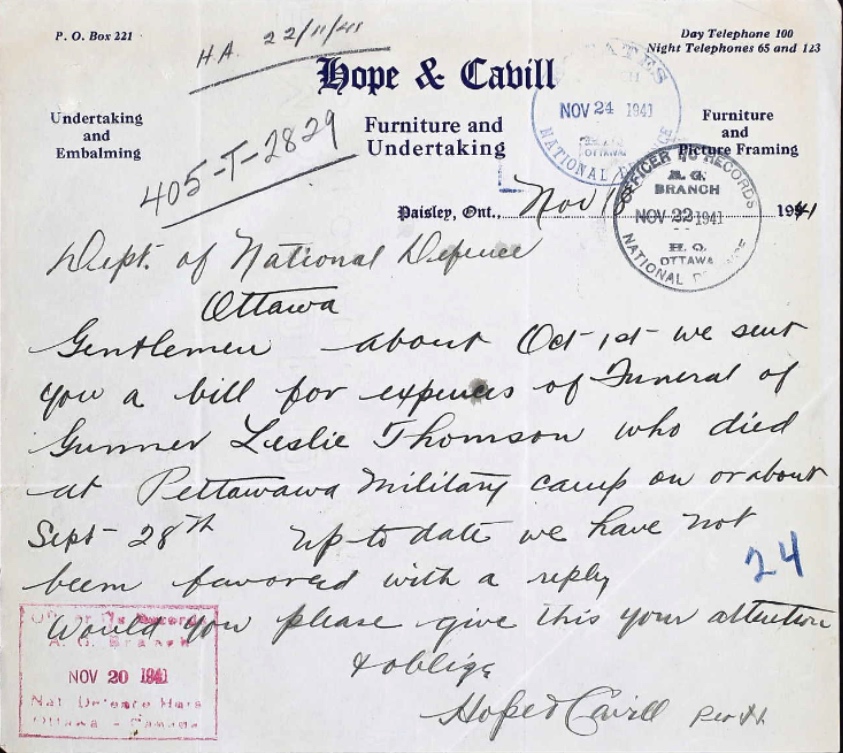 P. O. Box 221
H.A. 22/11/41
Day Telephone 100
Night Telephones 65 and 123
Hope & Cavill
Undertaking
and
Embalming
405-T-2829
Furniture and
Undertaking
Furniture
and
Picture Framing
ESTATES
NOV 24 1941
OTTAWA
NATIONAL DEFENCE
OFFICER I/C RECORDS
A. G.
BRANCH
NOV 22 1941
H. Q.
OTTAWA
NATIONAL DEFENCE
Paisley, Ont., Nov 1941
Dept. of National Defence
Ottawa
Gentlemen about Oct 1st we sent
you a bill for expences of Funeral of
Gunner Leslie Thomson who died
at Pettawawa Military camp on or about
Sept 28th up to date we have not
been favored with a reply
24
Would you please give this your attention
& oblige
Hope & Cavill Per
Records
A. G. Branch
NOV 20 1941
Nat Defence Hqrs
Ottawa - Canada